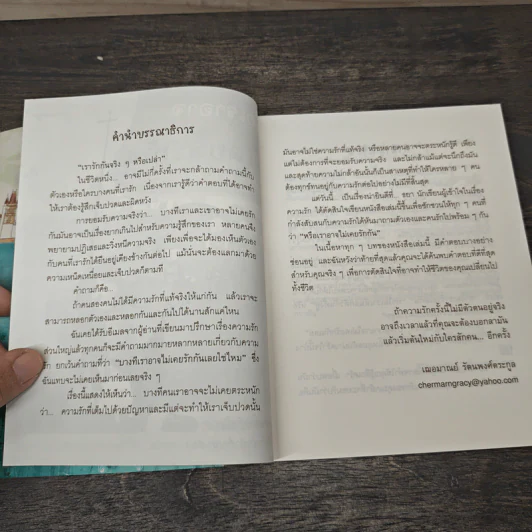 คำนำบรรณาธิการ
"เรารักกันจริง ๆ หรือเปล่า"
ในชีวิตหนึ่ง... อาจมีไม่กี่ครั้งที่เราจะกล้าถามคำถามนี้กับ
ตัวเองหรือใครบางคนที่เรารัก เนื่องจากเรารู้ดีว่าคำตอบที่ได้อาจทำ
ให้เราต้องรู้สึกเจ็บปวดและผิดหวัง
การยอมรับความจริงว่า... บางทีเราและเขาอาจไม่เคยรัก
กันมันอาจเป็นเรื่องยากเกินไปสำหรับความรู้สึกของเรา หลายคนจึง
พยายามปฏิเสธและวิ่งหนีความจริง เพียงเพื่อจะได้มองเห็นตัวเอง
กับคนที่เรารักได้ยืนอยู่เคียงข้างกันต่อไป แม้นั่นจะต้องแลกมาด้วย
ความเหน็ดเหนื่อยและเจ็บปวดก็ตามที
คำถามก็คือ...
ถ้าคนสองคนไม่ได้มีความรักที่แท้จริงให้แก่กัน แล้วเราจะ
สามารถหลอกตัวเองและหลอกกันและกันไปได้นานสักแค่ไหน
ฉันเคยได้รับอีเมลจากผู้อ่านที่เขียนมาปรึกษาเรื่องความรัก
ส่วนใหญ่แล้วทุกคนก็จะมีคำถามมากมายหลากหลายเกี่ยวกับความ
รัก ยกเว้นคำถามที่ว่า "บางทีเราอาจไม่เคยรักกันเลยใช่ไหม" ซึ่ง
ฉันแทบจะไม่เคยเห็นมาก่อนเลยจริง ๆ
เรื่องนี้แสดงให้เห็นว่า... บางทีคนเราอาจจะไม่เคยตระหนัก
ว่า... ความรักที่เต็มไปด้วยปัญหาและมีแต่จะทำให้เราเจ็บปวดนั้น
มันอาจไม่ใช่ความรักที่แท้จริง หรือหลายคนอาจจะตระหนักรู้ดี เพียง
แต่ไม่ต้องการที่จะยอมรับความจริง และไม่กล้าแม้แต่จะนึกถึงมัน
และสุดท้ายความไม่กล้าอันนั้นก็เป็นสาเหตุที่ทำให้ใครหลาย ๆ คน
ต้องทุกข์ทนอยู่กับความรักต่อไปอย่างไม่มีที่สิ้นสุด
แต่วันนี้... เป็นเรื่องน่ายินดีที่ อยา นักเขียนผู้เข้าใจในเรื่อง
ความรัก ได้ตัดสินใจเขียนหนังสือเล่มนี้ขึ้นเพื่อชักชวนให้ทุก ๆ คนที่
กำลังสับสนกับความรักได้หันมาถามตัวเองและคนรักไปพร้อม ๆ กัน
ว่า "หรือเราอาจไม่เคยรักกัน"
ในเนื้อหาทุก ๆ บทของหนังสือเล่มนี้ มีคำตอบบางอย่าง
ซ่อนอยู่ และฉันหวังว่าท้ายที่สุดแล้วคุณจะได้ค้นพบคำตอบที่ดีที่สุด
สำหรับคุณจริง ๆ เพื่อการตัดสินใจที่อาจทำให้ชีวิตของคุณเปลี่ยนไป
ทั้งชีวิต
ถ้าความรักครั้งนี้ไม่มีตัวตนอยู่จริง
อาจถึงเวลาแล้วที่คุณจะต้องบอกลามัน
แล้วเริ่มต้นใหม่กับใครสักคน... อีกครั้ง
เฌอมาณย์ รัตนพงศ์ตระกูล
chermarngracy@yahoo.com